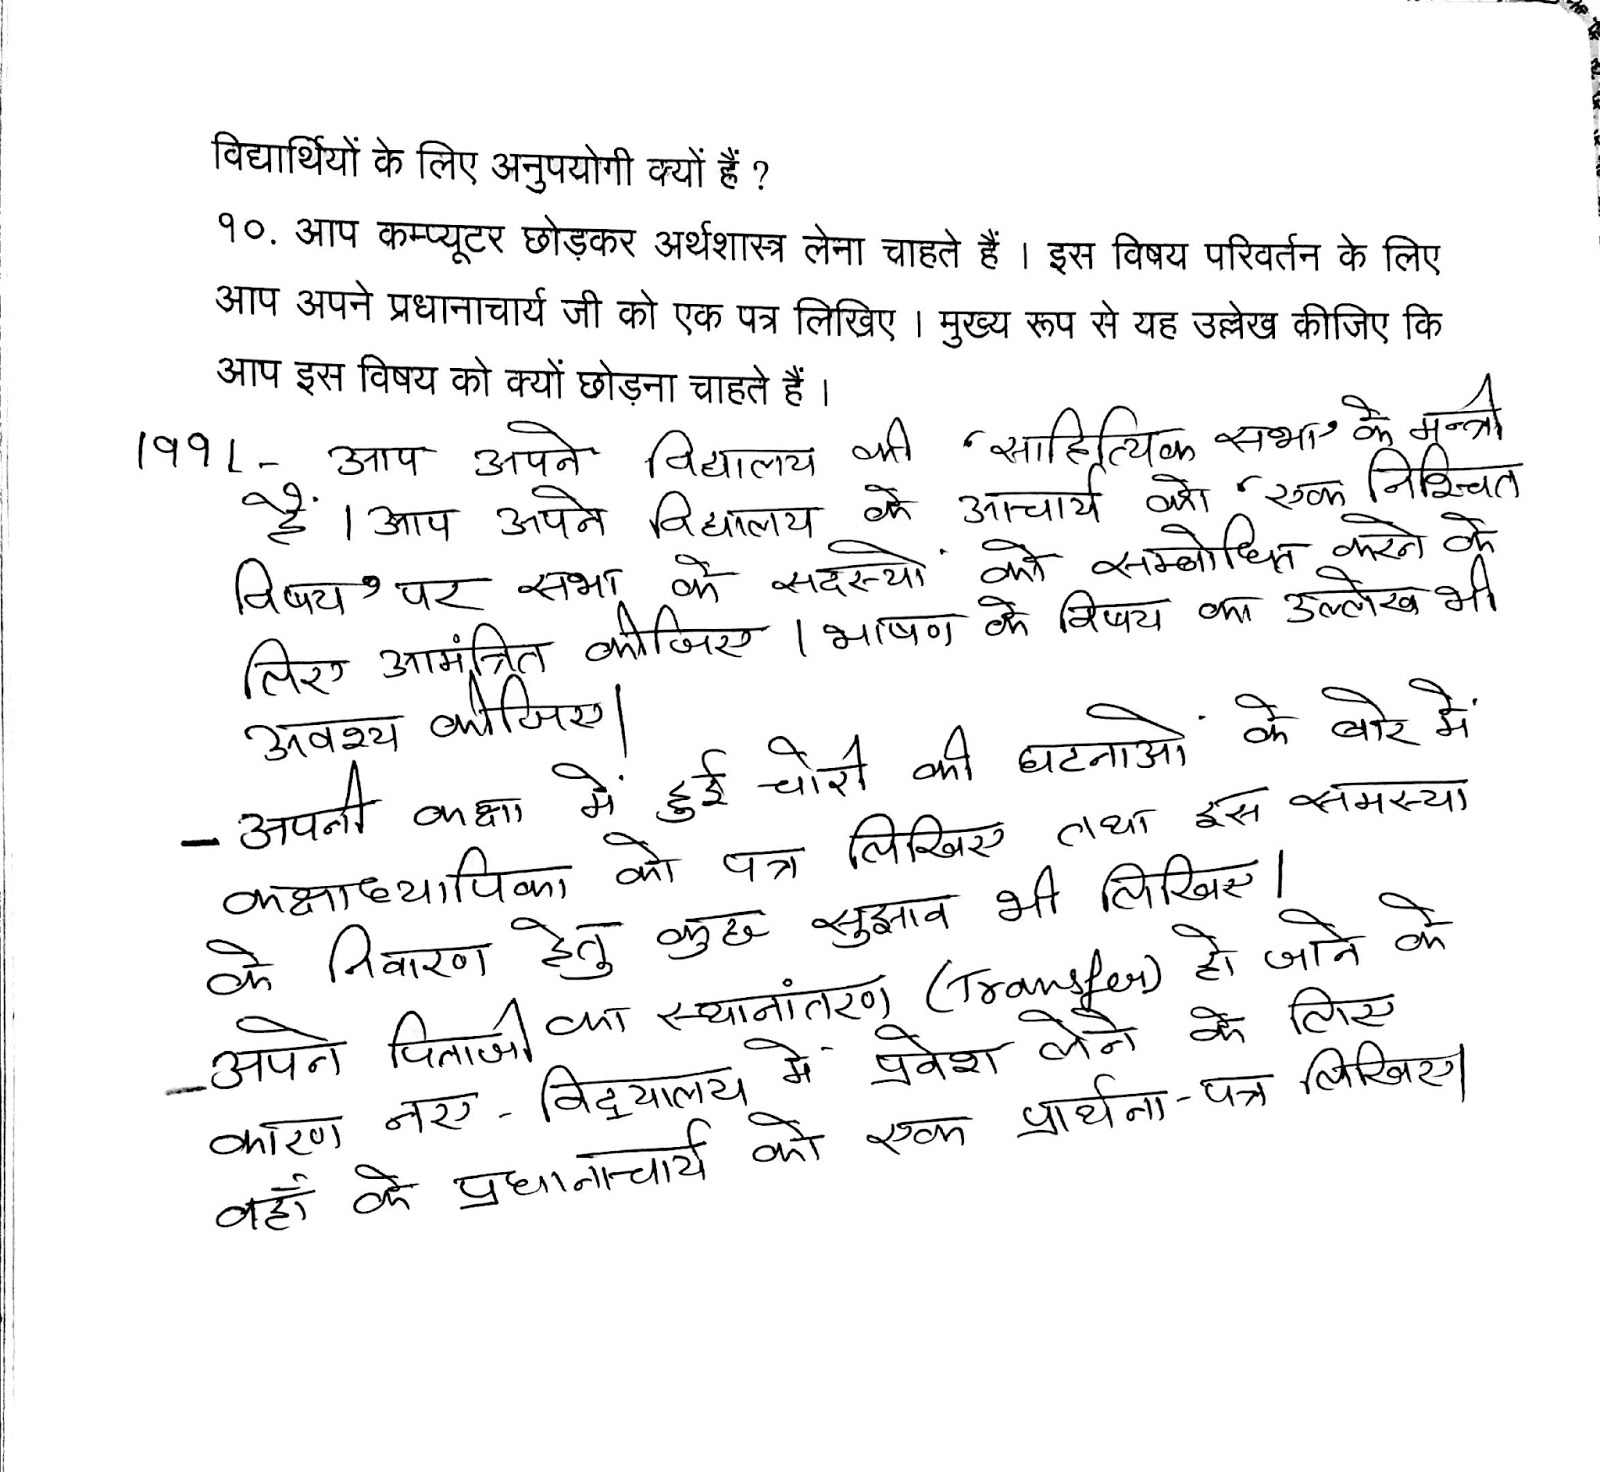 विद्यार्थियों के लिए अनुपयोगी क्यों हैं ?
१०. आप कम्प्यूटर छोड़कर अर्थशास्त्र लेना चाहते हैं । इस विषय परिवर्तन के लिए
आप अपने प्रधानाचार्य जी को एक पत्र लिखिए । मुख्य रूप से यह उल्लेख कीजिए कि
आप इस विषय को क्यों छोड़ना चाहते हैं ।
1991- आप अपने विद्यालय की 'साहित्यिक सभा' के मन्त्री
हैं । आप अपने विद्यालय के आचार्य को 'एक निश्चित
विषय' पर सभा के सदस्यों को सम्बोधित करने के
लिए आमंत्रित कीजिए । भाषण के विषय का उल्लेख भी
अवश्य कीजिए।
- अपनी कक्षा में हुई चोरी की घटनाओं के बारे में
कक्षाध्यापिका को पत्र लिखिए तथा इस समस्या
के निवारण हेतु कुछ सुझाव भी लिखिए।
- अपने पिताजी का स्थानांतरण (Transfer) हो जाने के
कारण नए - विद्यालय में प्रवेश लेने के लिए
वहाँ के प्रधानाचार्य को एक प्रार्थना-पत्र लिखिए।